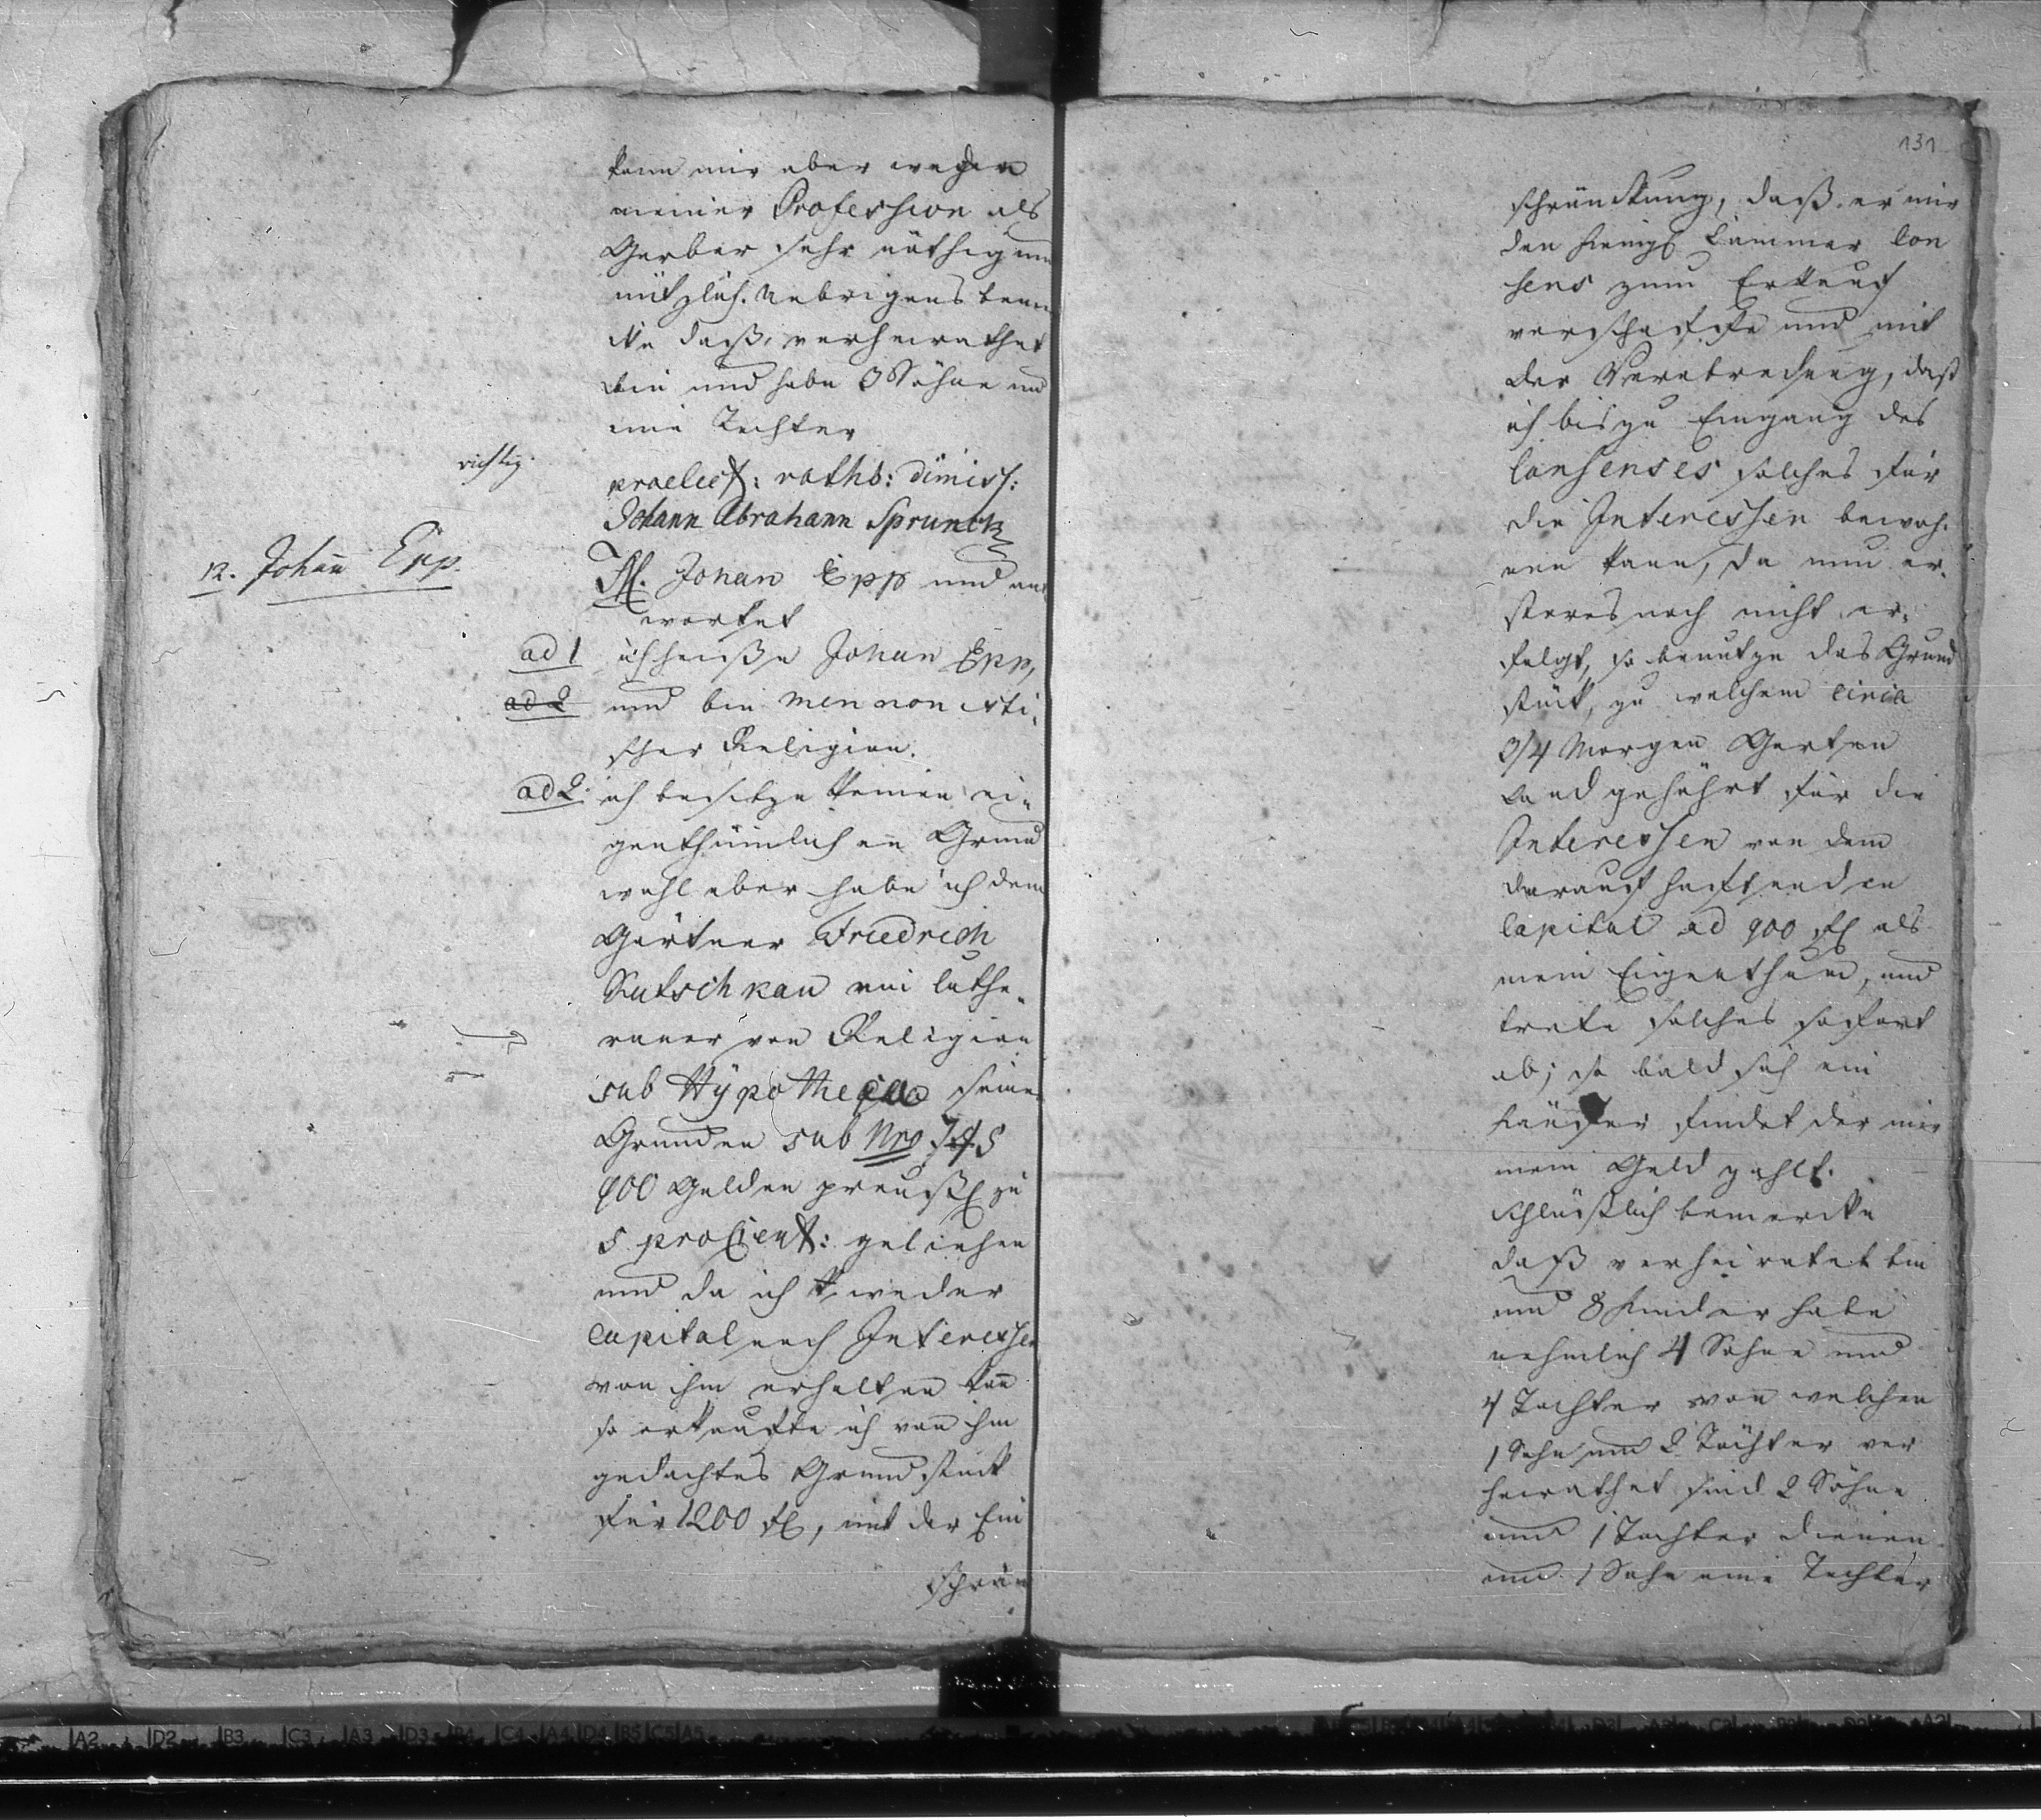 kann mir aber wegen
meiner Profession als
Gerber sehr nöthig und
nützlich. Uebrigens bemer
cke daß, verheirathet
bin und habe 3 Söhne und
eine Tochter
richtig.
praelect: rathb: dimiss:
Johann Abrahann Sprunck
12. Johañ Epp.
Johan Epp und ant
wortet
ad 1 ich heiße Johan Epp,
ad 2 und bin mennonisti,
scher Religion.
ad 2. ich besitze keinen ei„
genthümlichen Grund
wohl aber habe ich dem
Gärtner Friedrich
Kutschkau ein luthe„
raner von Religion
sub Hÿpotheca seines
Grunden sub Nro
900 Gulden preuß zu
5 proCient: geliehen
und da ich weder
Capital noch Interessen
von ihm erhalten kañ
so erkaufte ich von ihm
gedachtes Grundstück
für 1200 fl, mit der Ein
schrän
131
schränckung, daß er mir
den Königl Cammer Con
sens zum Erkauf
verschaffe und mit
der Verabredung, daß
ich bis zu Eingang des
Consenses solches für
die Interessen bewoh„
nen kann, da nun er„
steres noch nicht er„
folgt, so benutze das Grund
stück, zu welchem circa
3/4 Morgen Garten
Land gehöhrt für die
Interessen von dem
darauf haftenden
Capital ad 900 fl als
mein Eigenthum, und
trete solches sofort
ab, so bald sich ein
Käufer findet der mir
mein Geld zahlt.
Schlüßlich bemercke
daß verheiratet bin
und 8 Kinder habe
nehmlich 4 Sohne und
4 Tochter von welchen
1 Sohn und 2 Töchter ver
heirathet sind 2 Söhne
und 1 Tochter dienen
und 1 Sohn eine Tochter